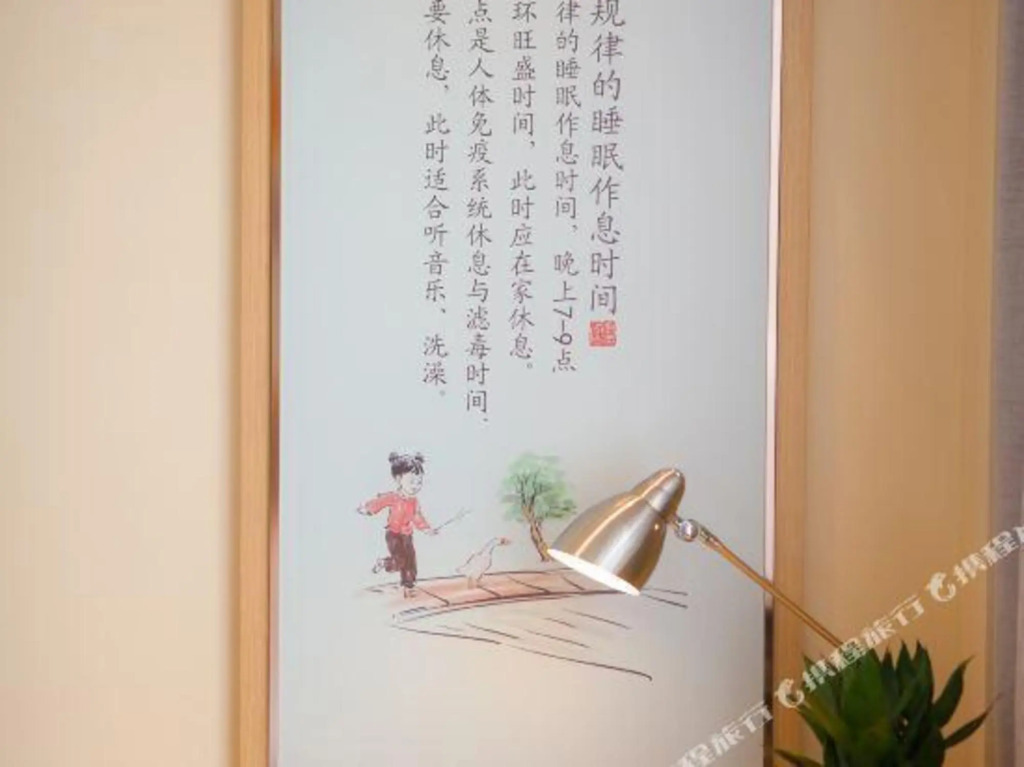 规律的睡眠作息时间
律的睡眠作息时间，晚上7-9点
环旺盛时间，此时应在家休息。
点是人体免疫系统休息与滤毒时间，
要休息，此时适合听音乐、洗澡。
携程旅行
携程旅行
携程